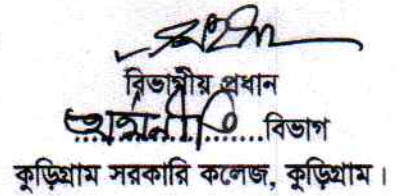 বিভাগীয় প্রধান
অর্থনীতি.....বিভাগ
কুড়িগ্রাম সরকারি কলেজ, কুড়িগ্রাম।